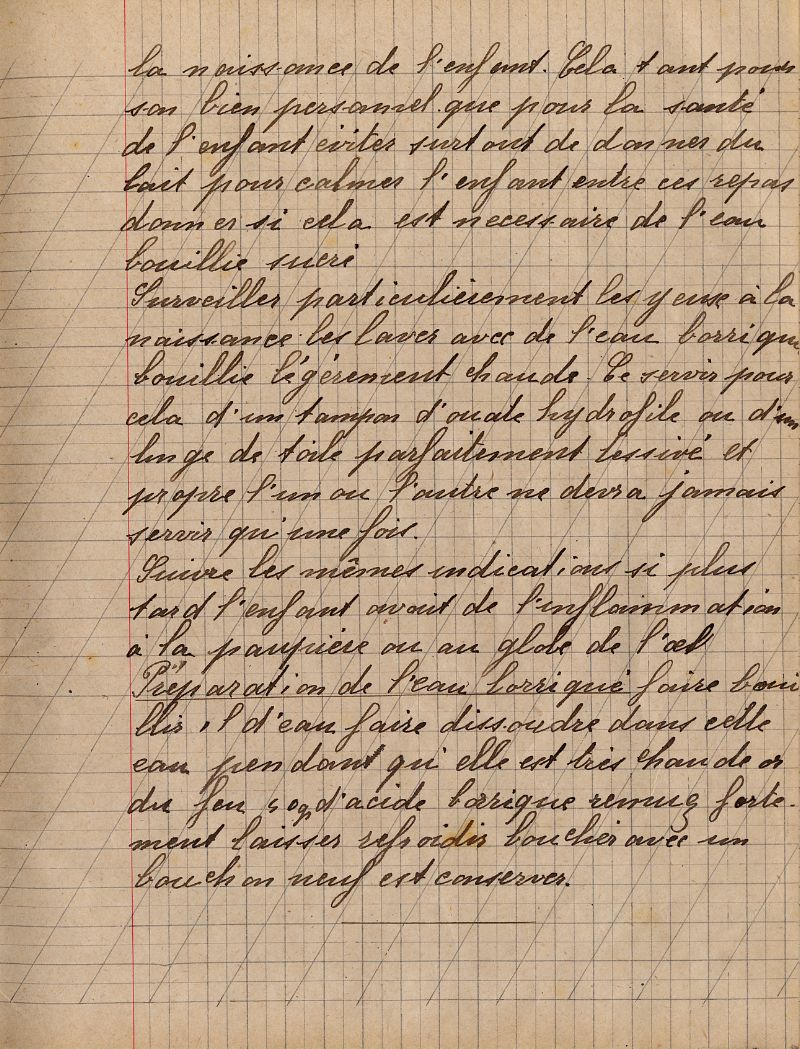 la naissance de l'enfant. Cela tant pour
son bien personnel que pour la santé
de l'enfant éviter surtout de donner du
lait pour calmer l'enfant entre ces repas
donner si cela est necessaire de l'eau
bouillie sucré
Surveiller particulièrement les yeux à la
naissance les laver avec de l'eau borrique
bouillie légérement chaude. Ce servir pour
cela d'un tampon d'ouate hydrofile ou d'un
linge de toile parfaitement lessivé et
propre l'un ou l'autre ne devra jamais
servir qu'une fois.
Suivre les mêmes indications si plus
tard l'enfant avait de l'inflammation
à la paupière ou au globe de l'œl
Préparation de l'eau borriqué faire boui
llir 1 l d'eau faire dissoudre dans cette
eau pendant qu'elle est très chaude or
du feu 40gr d'acide borrique remuez forte-
ment laisser refroidir boucher avec un
bouchon neuf est conserver.